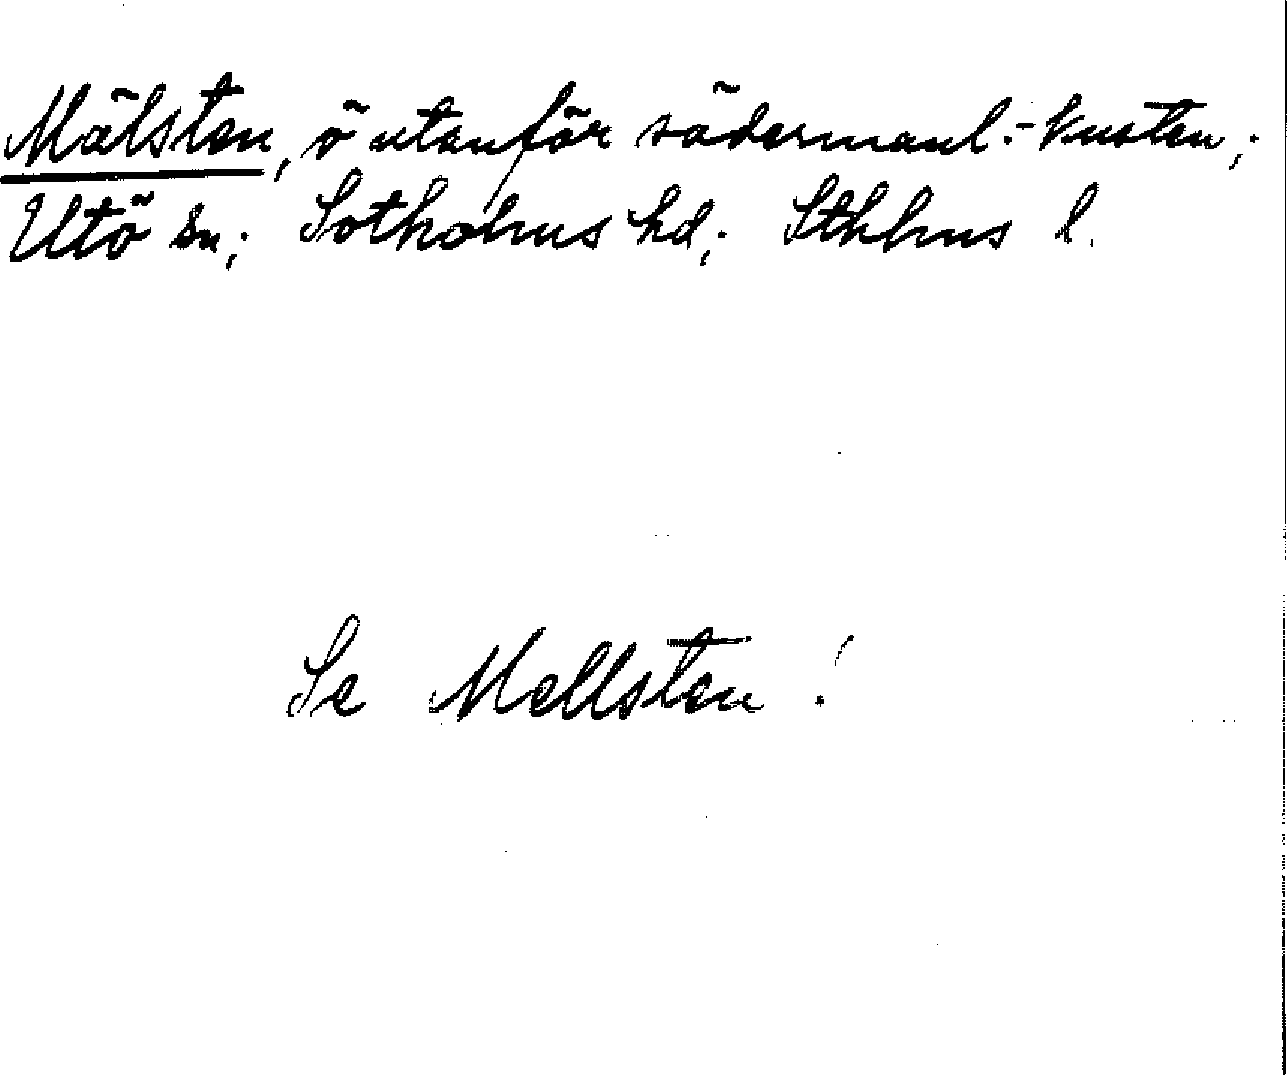 Mälsten, ö utanför södermanl.-kusten;
Utö sn; Sotholms hd; Sthlms l.
Se Mellsten!